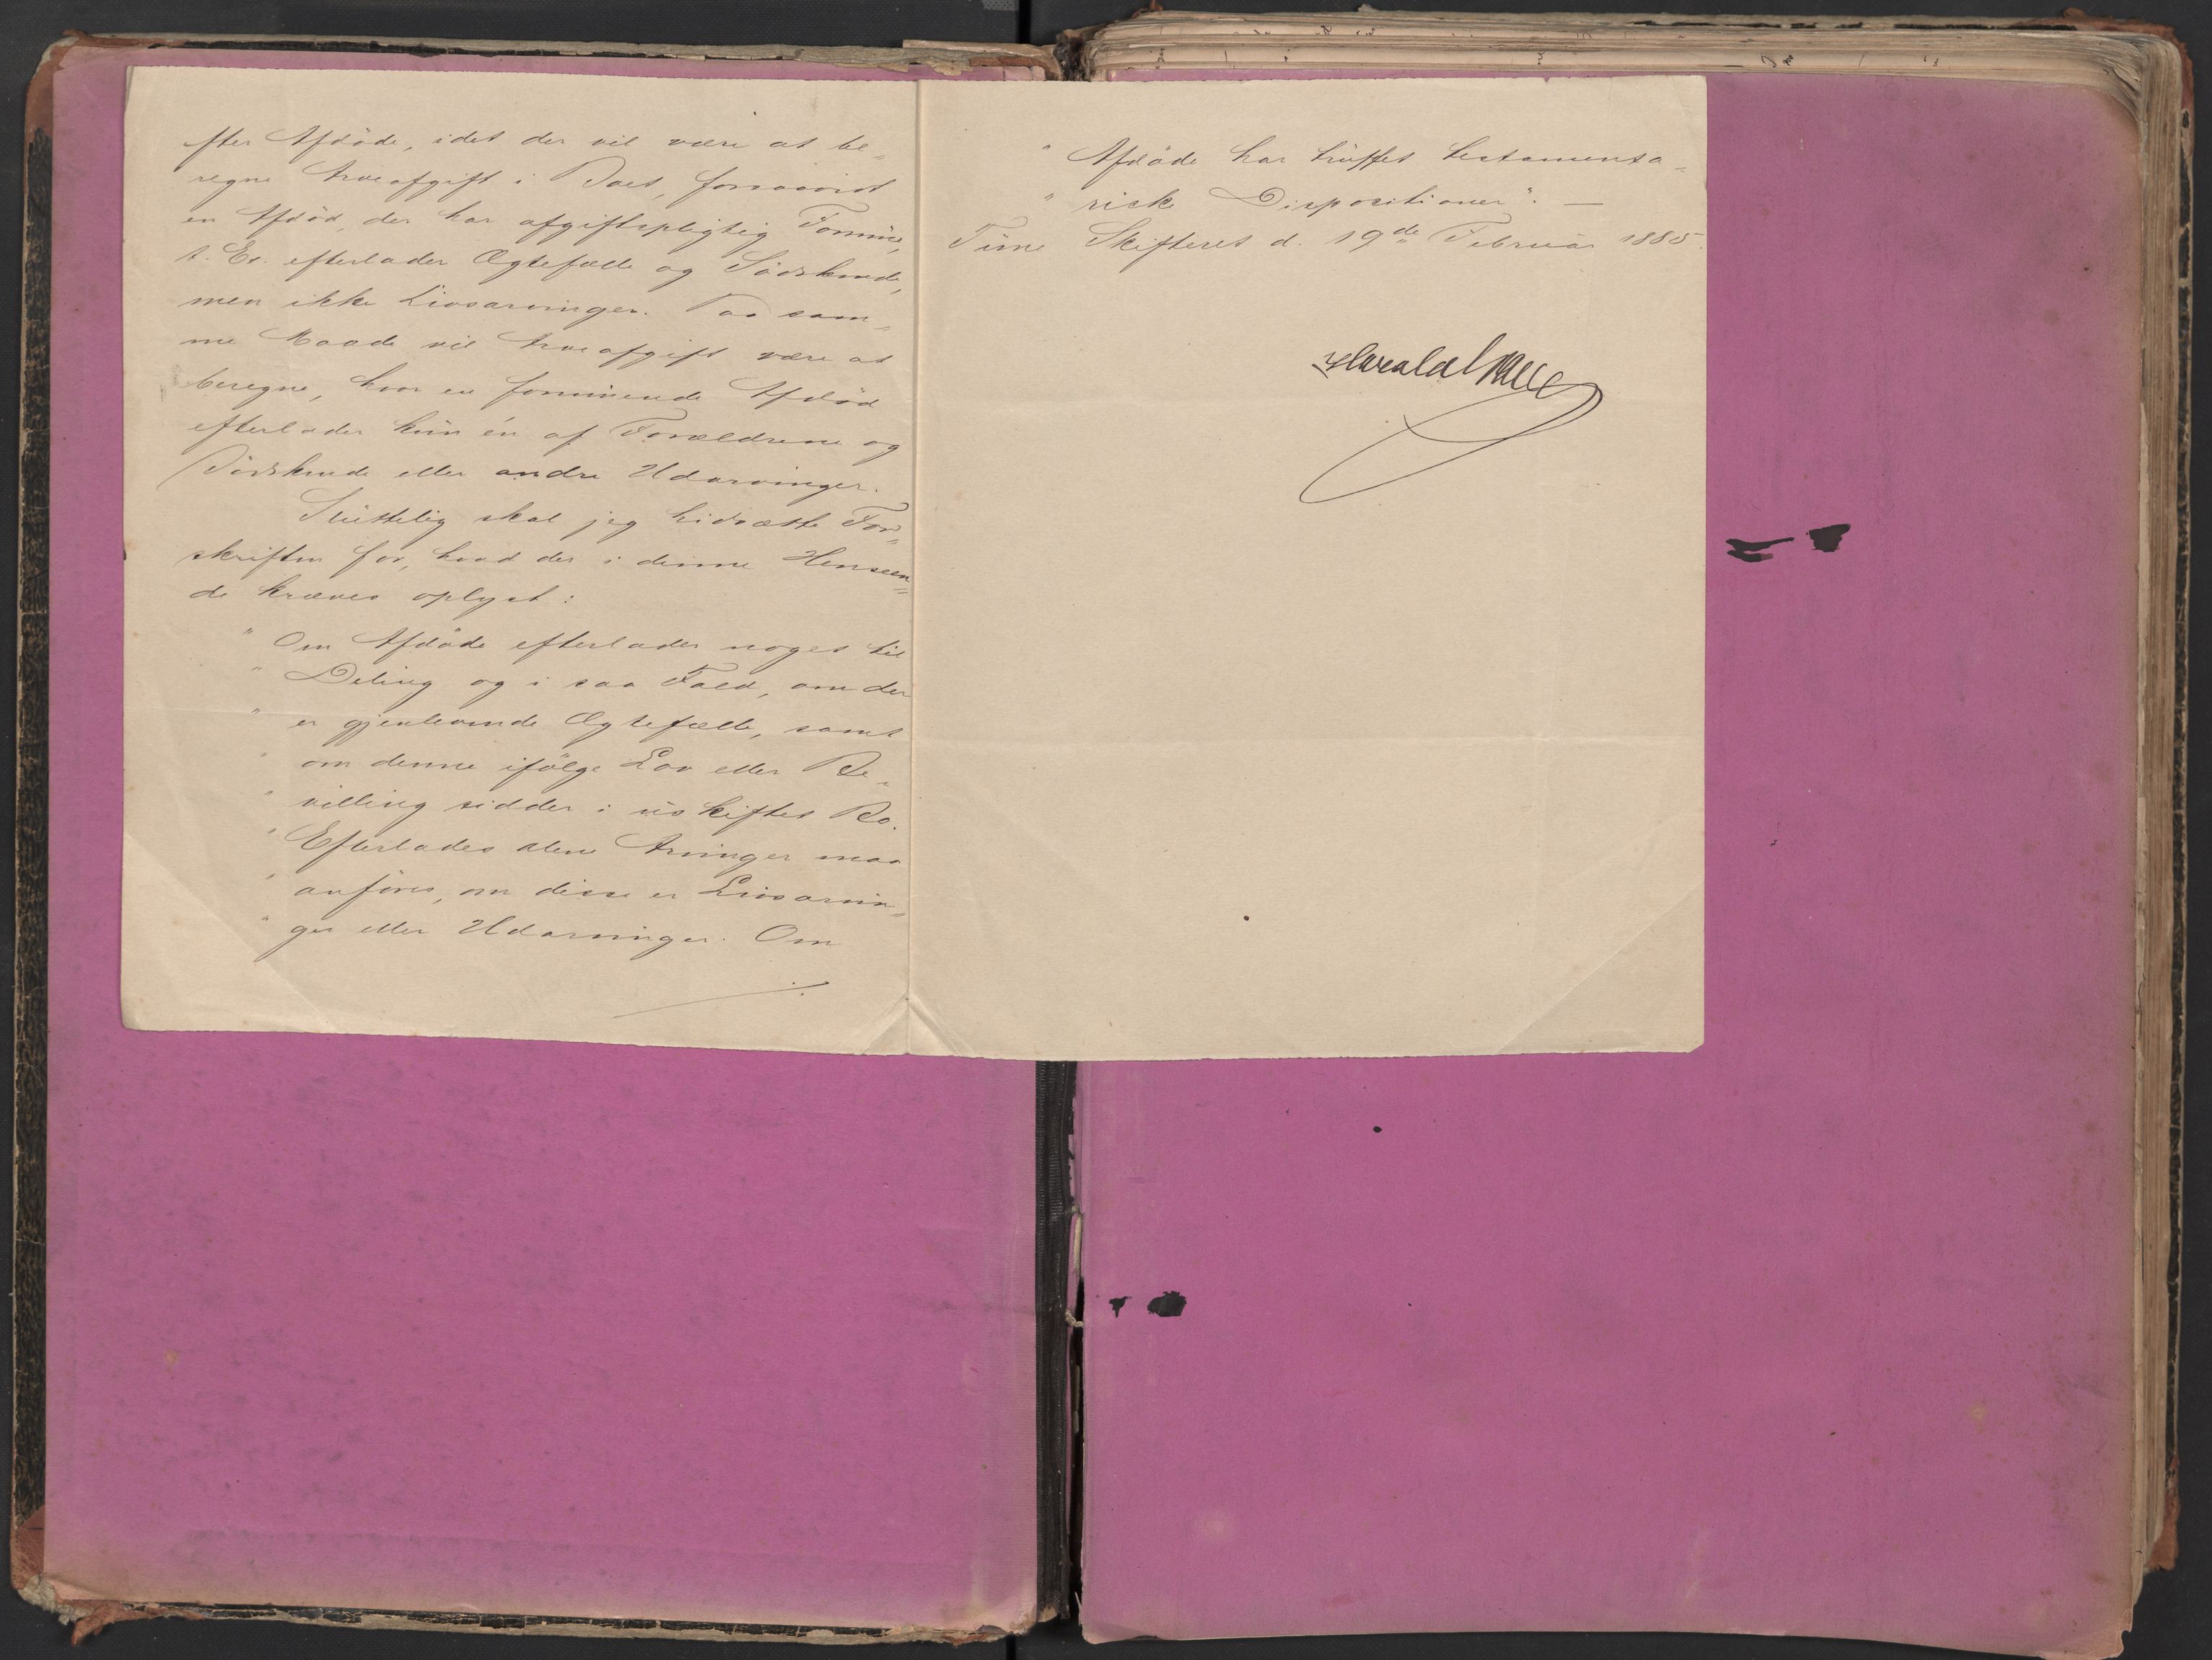 efter Afdöde, idet der vil være at be„
regne Arveafgift i Boet, forsaavidt
en Afdöd, der har afgiftspligtig Formue,
t. Ex. efterlader Ægtefælle og Södskende,
men ikke Livsarvinger. Paa sam„
me Maade vil Arveafgift være at
beregne, hvor en formuende Afdöd
efterlader kun én af Forældrene og
Södskende eller andre Udarvinger.
Sluttelig skal jeg hidsætte For„
skriften for, hvad der i denne Henseen„
de kræves oplyst:
" Om Afdöde efterlader noget til
" Deling og i saa Fald, om der
" er gjenlevende Ægtefælle, samt
" om denne ifölge Lov eller Be„
" villing sidder i uskiftet Bo.
" Efterlades alene Arvinger maa
" anföres, om disse er Livsarvin„
" ger eller Udarvinger. Om
" Afdöde har truffet testamenta„
" risk Dispositioner". —
Time Skifteret d. 19de Februar 1885.
Harald